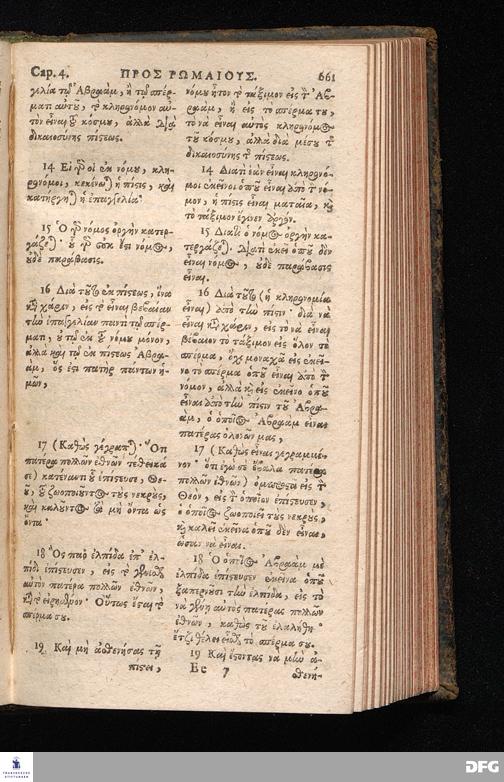 Cap. 4.
ΠΡΟΣ ΡΩΜΑΙΟΥΣ.
661
γελία τῷ Ἀβραὰμ, ἢ τῷ σπέρ-
ματι αὐτοῦ, τὸ κληρονόμον αὐ-
τὸν εἶναι τοῦ κόσμου, ἀλλὰ διὰ
δικαιοσύνης πίστεως.
14 Εἰ γὰρ οἱ ἐκ νόμου, κλη-
ρονόμοι, κεκένωται ἡ πίστις, καὶ
κατήργηται ἡ ἐπαγγελία·
15 Ὁ γὰρ νόμος ὀργὴν κατερ-
γάζεται· οὗ γὰρ οὐκ ἔστι νόμος,
οὐδὲ παράβασις.
16 Διὰ τοῦτο ἐκ πίστεως, ἵνα
κατὰ χάριν, εἰς τὸ εἶναι βεβαίαν
τὴν ἐπαγγελίαν παντὶ τῷ σπέρ-
ματι, οὐ τῷ ἐκ τοῦ νόμου μόνον,
ἀλλὰ καὶ τῷ ἐκ πίστεως Ἀβρα-
ὰμ, ὅς ἐστι πατὴρ πάντων ἡ-
μῶν,
17 (Καθὼς γέγραπται· Ὅτι
πατέρα πολλῶν ἐθνῶν τέθεικά
σε) κατέναντι οὗ ἐπίστευσε, Θε-
οῦ, τοῦ ζωοποιοῦντος τοὺς νεκροὺς,
καὶ καλοῦντος τὰ μὴ ὄντα ὡς
ὄντα·
18 Ὃς παρ' ἐλπίδα ἐπ' ἐλ-
πίδι ἐπίστευσεν, εἰς τὸ γενέσθαι
αὐτὸν πατέρα πολλῶν ἐθνῶν,
κατὰ τὸ εἰρημένον· Οὕτως ἔσται τὸ
σπέρμα σου.
19 Καὶ μὴ ἀσθενήσας τῇ
πίστει,
νόμου ἦτον τὸ τάξιμον εἰς τὸν Ἀβ-
ραὰμ, ἢ εἰς τὸ σπέρμα του,
τὸ νὰ εἶναι αὐτὸς κληρονόμος
τοῦ κόσμου, ἀλλὰ διὰ μέσου τῆς
δικαιοσύνης τῆς πίστεως.
14 Διατὶ ἐὰν εἶναι κληρονό-
μοι ἐκεῖνοι ὁποῦ εἶναι ἀπὸ τὸν νό-
μον, ἡ πίστις εἶναι ματαία, καὶ
τὸ τάξιμον ἔγινεν ἀργόν.
15 Διατὶ ὁ νόμος ὀργὴν κα-
τεργάζεται. Διατὶ ἐκεῖ ὁποῦ δὲν
εἶναι νόμος, οὐδὲ παράβασις
εἶναι.
16 Διὰ τοῦτο (ἡ κληρονομία
εἶναι) ἀπὸ τὴν πίστιν· διὰ νὰ
εἶναι κατὰ χάριν, εἰς τὸ νὰ εἶναι
βέβαιον τὸ τάξιμον εἰς ὅλον τὸ
σπέρμα, ὄχι μοναχὰ εἰς ἐκεῖ-
νο τὸ σπέρμα ὁποῦ εἶναι ἀπὸ τὸν
νόμον, ἀλλὰ καὶ εἰς ἐκεῖνο ὁποῦ
εἶναι ἀπὸ τὴν πίστιν τοῦ Ἀβρα-
ὰμ, ὁ ὁποῖος Ἀβραὰμ εἶναι
πατέρας ὁλονῶν μας,
17 (Καθὼς εἶναι γεγραμμέ-
νον· ὅτι ἐγὼ σὲ ἔβαλα πατέρα
πολλῶν ἐθνῶν) ὁμπροστὰ εἰς τὸν
Θεὸν, εἰς τὸν ὁποῖον ἐπίστευσεν,
ὁ ὁποῖος ζωοποιεῖ τοὺς νεκροὺς,
καὶ καλεῖ ἐκεῖνα ὁποῦ δὲν εἶναι,
ὡσὰν νὰ εἶναι.
18 Ὁ ὁποῖος Ἀβραὰμ μὲ
ἐλπίδα ἐπίστευσεν ἐκεῖνα ὁποῦ
ξαπερνοῦσι τὴν ἐλπίδα, εἰς τὸ
νὰ γένῃ αὐτὸς πατέρας πολλῶν
ἐθνῶν, καθὼς τοῦ ἐλαλήθη·
ἔτζι θέλει εἶσθαι τὸ σπέρμα σου.
19 Καὶ ἔστοντας νὰ μὴν ἀ-
Ee 7
σθενή-
DFG